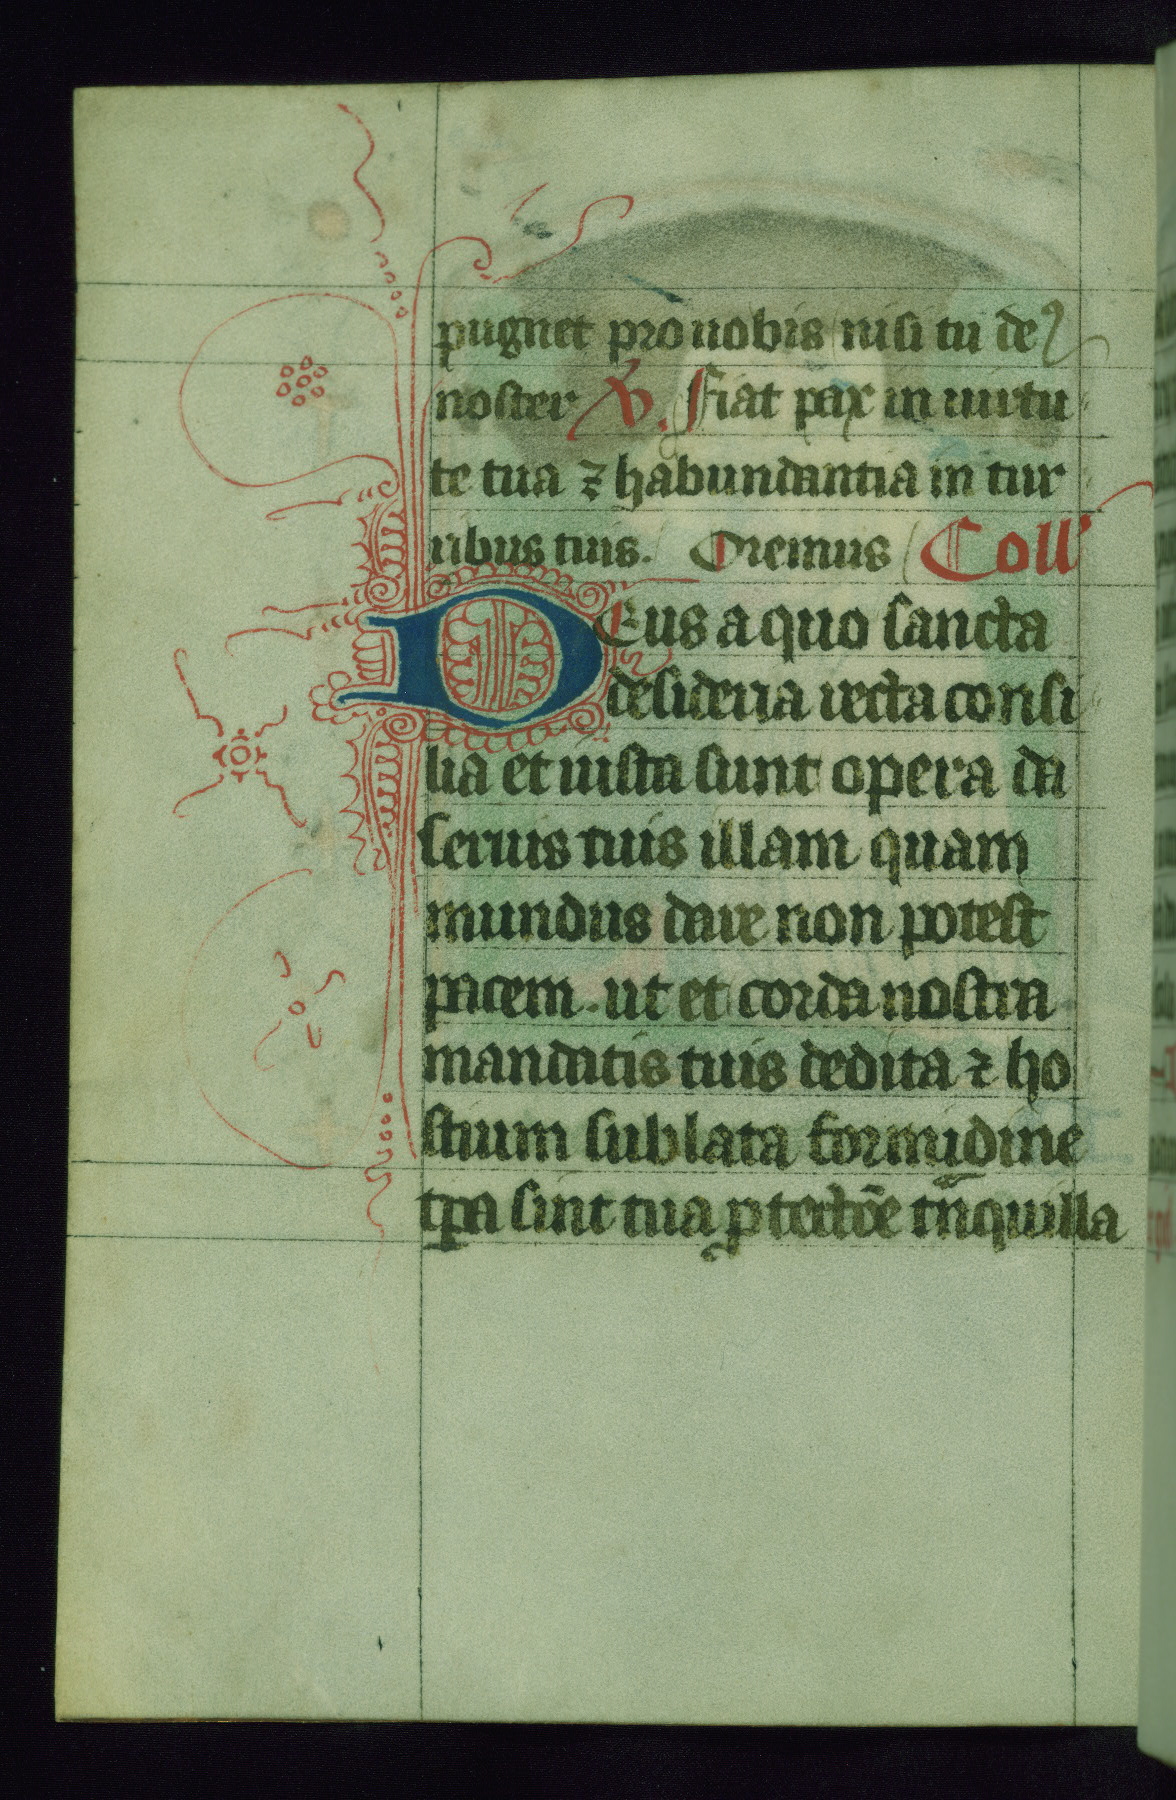 pugnet pro nobis nisi tu de⁹
noster ℣. Fiat pax in uirtu
te tua ⁊ habundantia in tur
ribus tuis. Oremus Coll'
Deus a quo sancta
desideria recta consi
lia et iusta sunt opera da
seruis tuis illam quam
mundus dare non potest
pacem . ut et corda nostra
mandatis tuis dedita ⁊ ho
stium sublata formidine
tꝑa sint tua ꝓtectōe tⁿquilla